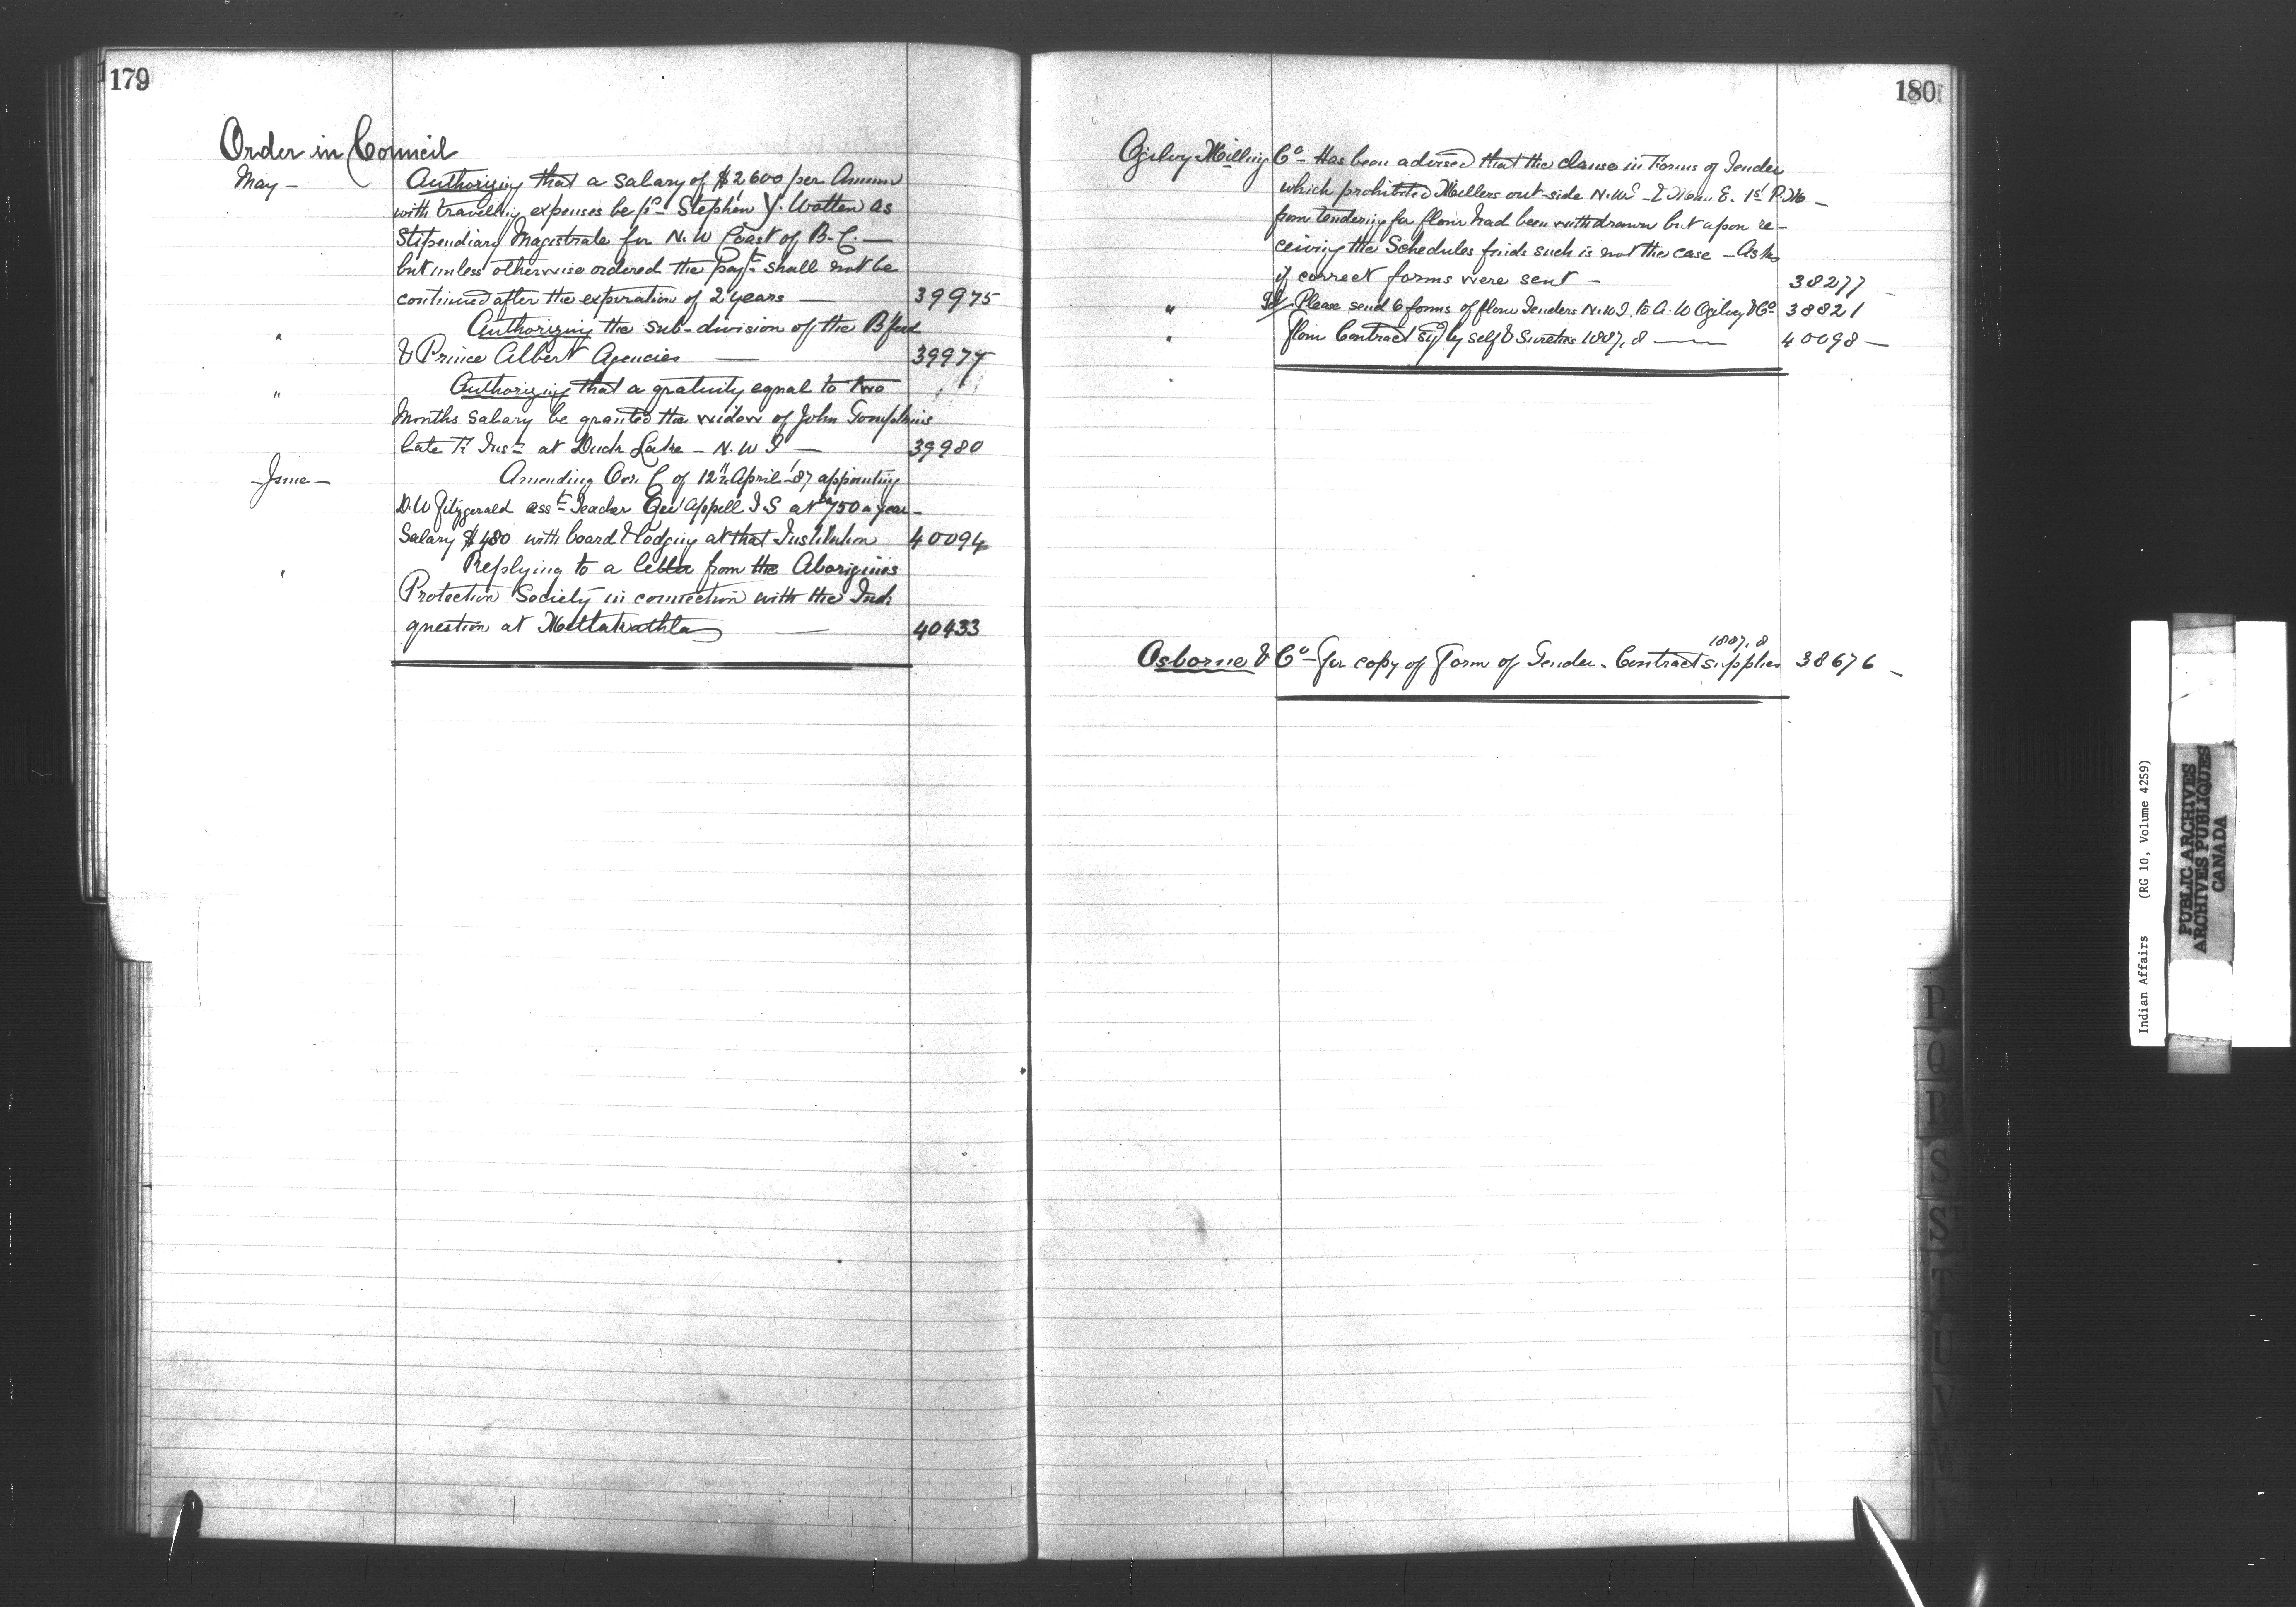 179
Order in Council
May - Authorizing that a salary of $2600 per Annum
with traveling expenses be pd Stephen Y. Wotten as
Stipendiary Magistrate for N.W Coast of B.C. —
but unless otherwise ordered the payt shall not be
continued after the expiration of 2 years — 39975
" Authorizing the sub-division of the B'ford
& Prince Albert Agencies — 39977
" Authorizing that a gratuity equal to two
Months salary be granted the widow of John Tompkins
late Fr Insr at Duck Lake - N.W.T — 39980
- June - Amending O in C of 12th April '87 appointing
D.W Fitzgerald asst Teacher Qu'Appell I.S at $750 a year -
Salary $480 with board & lodging at that Institution 40094
" Replying to a letter from the Aborigines
Protection Society in connection with the Ind:
question at Mettakathla — 40433
180
Ogilvy Milling Co - Has been advised that the clause in Forms of Tender
which prohibited Millers out-side N.W.T. E. 1st
from tendering for flour had been withdrawn but upon re-
ceiving the Schedules finds such is not the case - Asks
if correct forms were sent - 38277
" Please send 6 forms of flour Tenders N.W.T. to A.W Ogilvy & Co 38821
" flour Contract sgd by self & Sureties 1887.8 — 40098 —
Osborne & Co - for copy of Form of Tender - Contract supplies 1887.8 38676 -
P
Q
R
S
ST
T
U
V
W
Indian Affairs (RG 10, Volume 4259)
PUBLIC ARCHIVES
ARCHIVES PUBLIQUES
CANADA